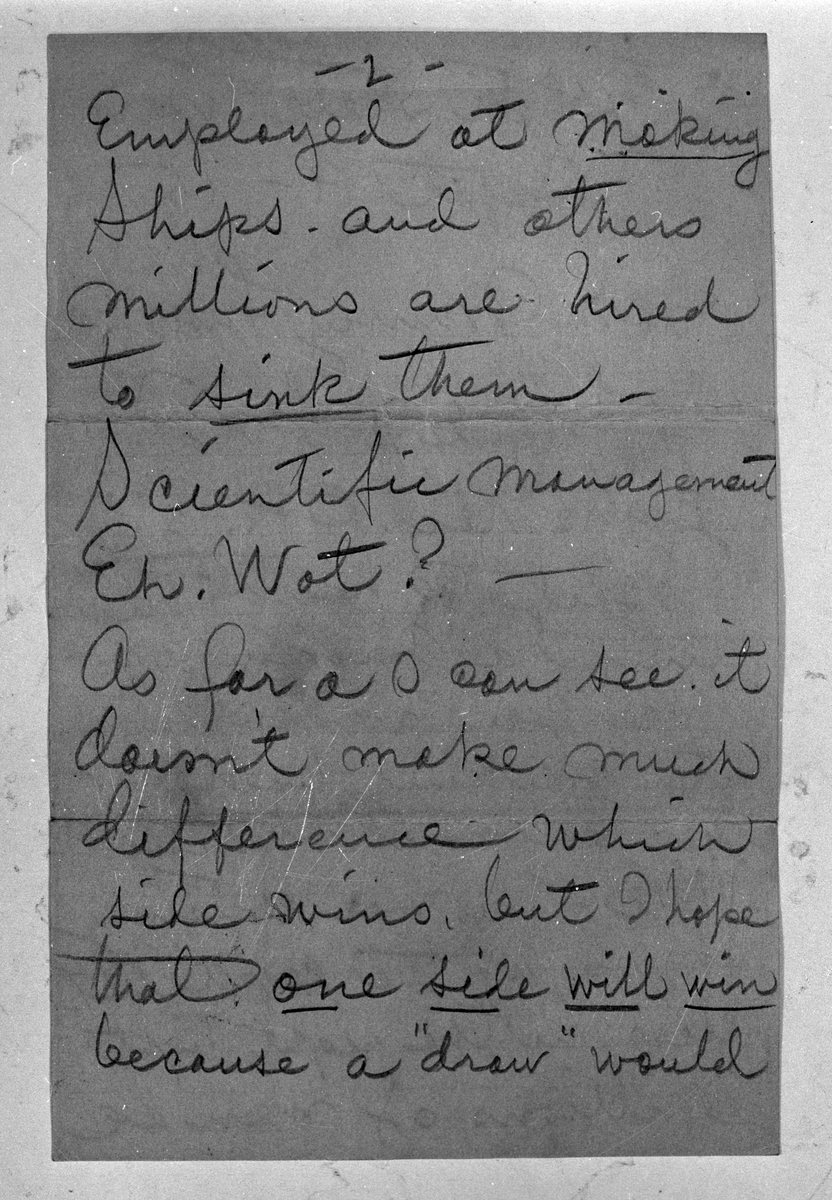 - 2 -
Employed at making
Ships. and others
millions are hired
to sink them -
Scientific management
Eh. Wot? —
As far a I can see. it
doesn't make much
difference which
side wins. but I hope
that one side will win
because a "draw" would